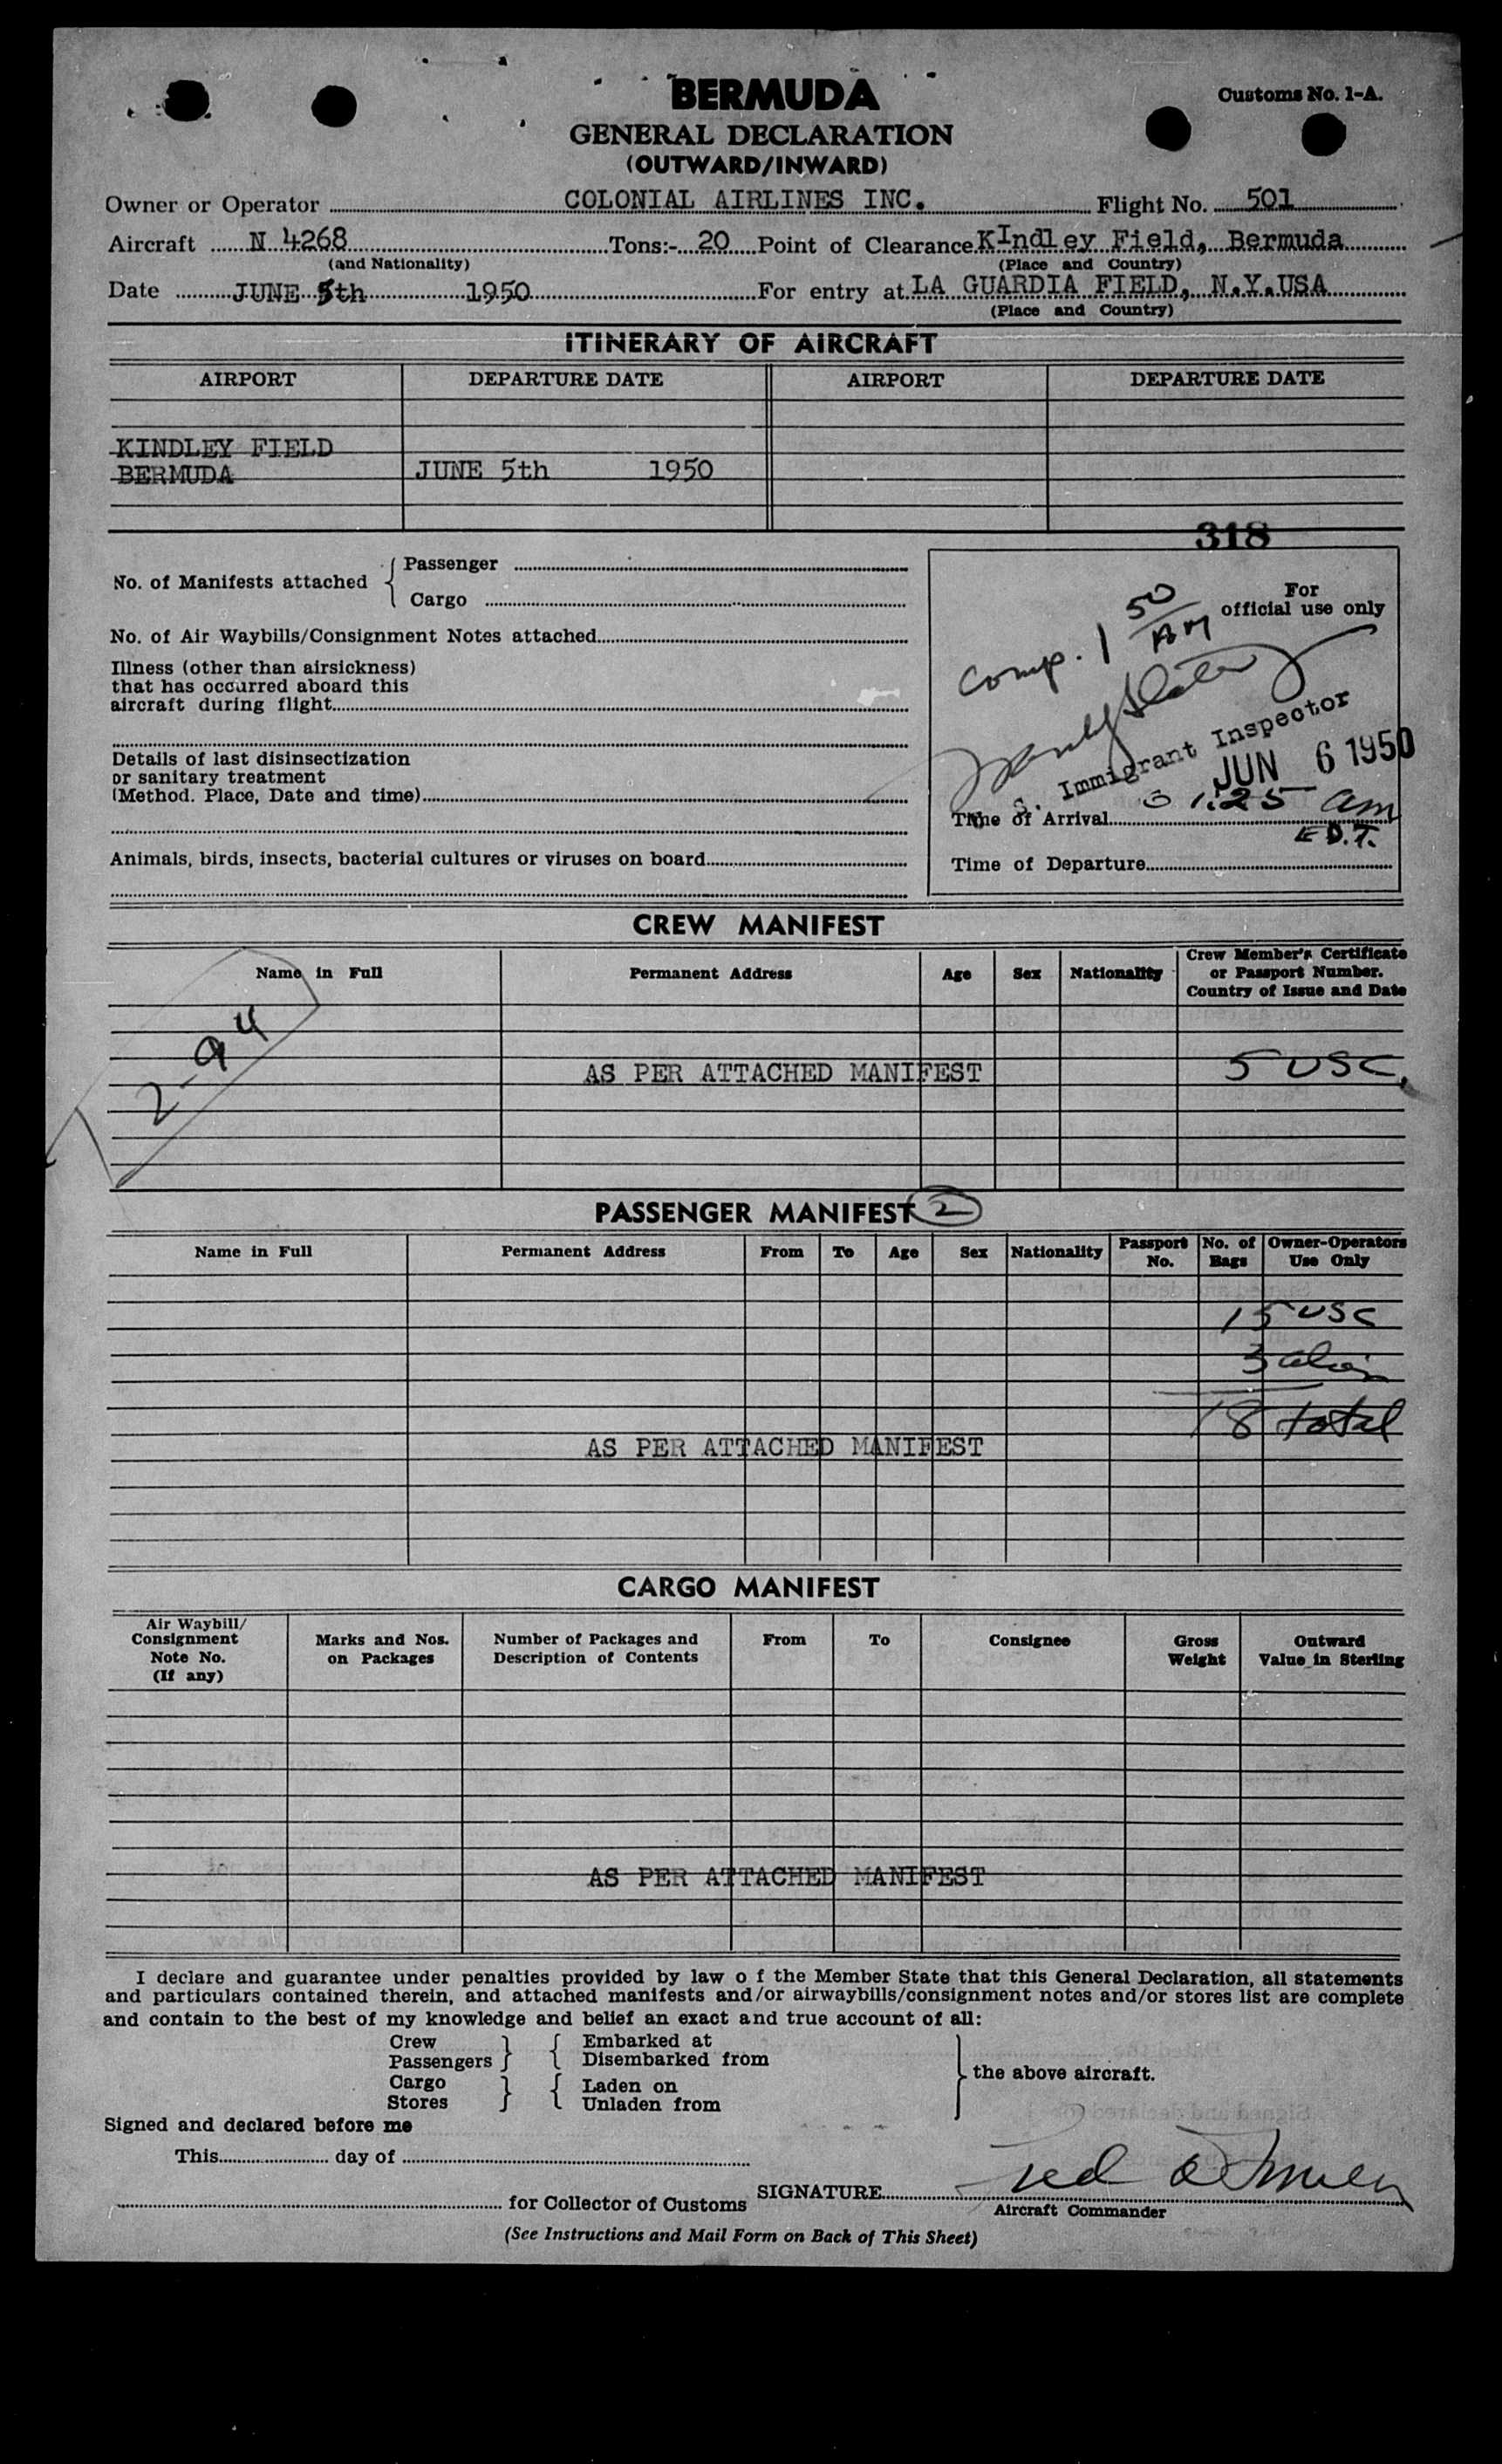 BERMUDA
Customs No. 1-A.
GENERAL DECLARATION
(OUTWARD/INWARD)
Owner or Operator COLONIAL AIRLINES INC. Flight No. 501
Aircraft N 4268 Tons:- 20 Point of Clearance KIndley Field, Bermuda
(and Nationality) (Place and Country)
Date JUNE 5th 1950 For entry at LA GUARDIA FIELD, N.Y.USA
(Place and Country)
ITINERARY OF AIRCRAFT
AIRPORT DEPARTURE DATE AIRPORT DEPARTURE DATE
KINDLEY FIELD
BERMUDA JUNE 5th 1950
318
No. of Manifests attached { Passenger
Cargo
For
official use only
comp. 1 50
AM
No. of Air Waybills/Consignment Notes attached
Illness (other than airsickness)
that has occurred aboard this
aircraft during flight
Details of last disinsectization
or sanitary treatment
(Method. Place, Date and time)
S. Immigrant Inspector
JUN 6 1950
Time of Arrival 1:25 am
E D.T.
Animals, birds, insects, bacterial cultures or viruses on board
Time of Departure
CREW MANIFEST
Name in Full Permanent Address Age Sex Nationality Crew Member's Certificate
or Passport Number.
Country of Issue and Date
2-94
AS PER ATTACHED MANIFEST 5 USC,
PASSENGER MANIFEST 2
Name in Full Permanent Address From To Age Sex Nationality Passport No. No. of Bags Owner-Operators Use Only
15 USC
3 alien
18 total
AS PER ATTACHED MANIFEST
CARGO MANIFEST
Air Waybill/
Consignment
Note No.
(If any)
Marks and Nos.
on Packages
Number of Packages and
Description of Contents
From To Consignee
Gross
Weight
Outward
Value in Sterling
AS PER ATTACHED MANIFEST
I declare and guarantee under penalties provided by law o f the Member State that this General Declaration, all statements
and particulars contained therein, and attached manifests and/or airwaybills/consignment notes and/or stores list are complete
and contain to the best of my knowledge and belief an exact and true account of all:
Crew } { Embarked at
Passengers } { Disembarked from
Cargo } { Laden on
Stores } { Unladen from
} the above aircraft.
Signed and declared before me
This day of
for Collector of Customs SIGNATURE Ted
Aircraft Commander
(See Instructions and Mail Form on Back of This Sheet)